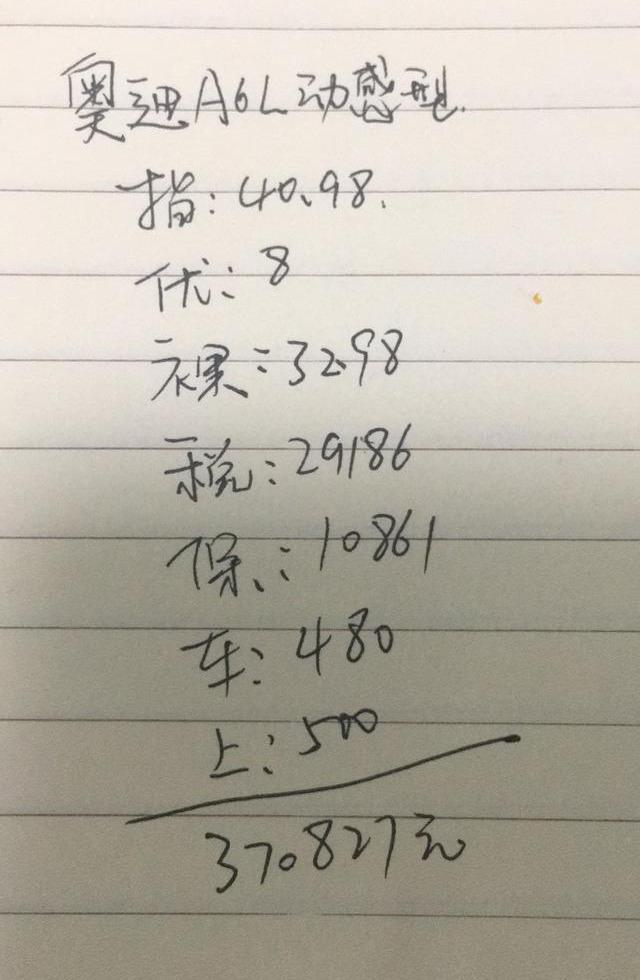 奥迪A6L动感型.
指:40.98.
优:8
裸:32.98
税:29186
保:10861
车:480
上:500
370827元